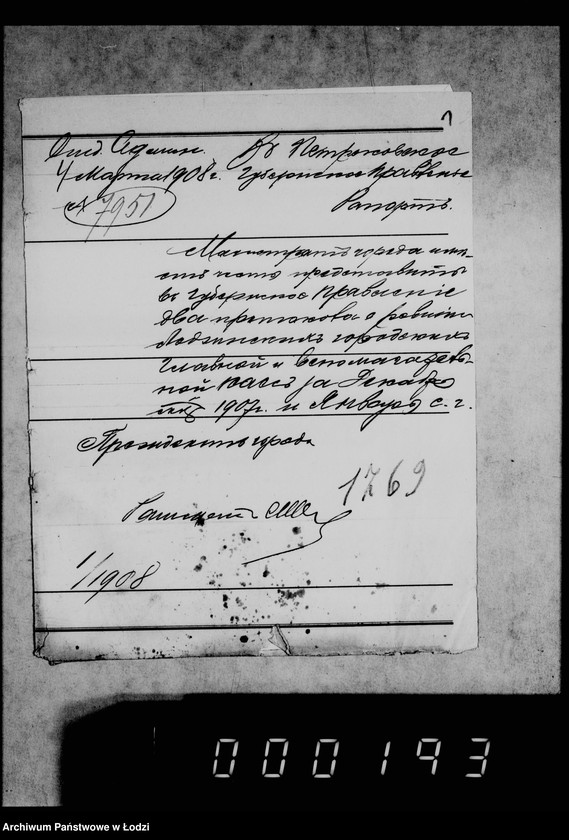 1
Отд. Админ.
4 Марта 1908 г.
№ 7951
Въ Петроковское
Губернское Правленіе
Рапортъ.
Магистратъ города имѣ-
етъ честь представить
въ Губернское Правленіе
два протокола о ревизіи
Лодзинскихъ городскихъ
главной и вспомогатель-
ной кассъ за Декабрь
1907 г. и Январь с. г.
Президентъ города
1769
1/1908
000193
Archiwum Państwowe w Łodzi